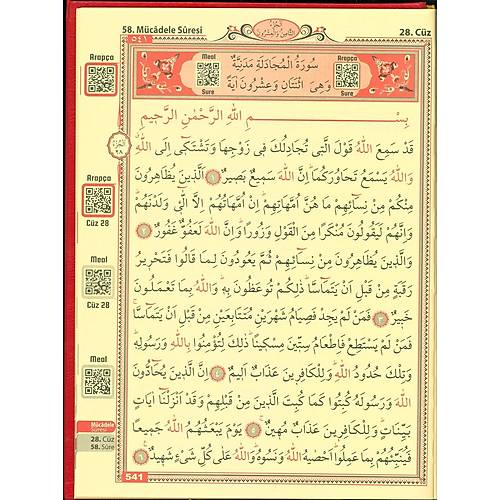 58. Mücâdele Sûresi
الجزء الثامن والعشرون
28. Cüz
٥٤١
Arapça
Meal
Sure
سُورَةُ الْمُجَادَلَةِ مَدَنِيَّةٌ
وَهِيَ اثْنَتَانِ وَعِشْرُونَ اٰيَةً
Arapça
Sure
بِسْمِ اللّٰهِ الرَّحْمٰنِ الرَّحِيمِ
قَدْ سَمِعَ اللّٰهُ قَوْلَ الَّتِي تُجَادِلُكَ فِي زَوْجِهَا وَتَشْتَكِٓي اِلَى اللّٰهِ
وَاللّٰهُ يَسْمَعُ تَحَاوُرَكُمَا اِنَّ اللّٰهَ سَمِيعٌ بَصِيرٌ ﴿١﴾ اَلَّذِينَ يُظَاهِرُونَ
مِنْكُمْ مِنْ نِسَٓائِهِمْ مَا هُنَّ اُمَّهَاتِهِمْ اِنْ اُمَّهَاتُهُمْ اِلَّا الّٰٓئِي وَلَدْنَهُمْ
وَاِنَّهُمْ لَيَقُولُونَ مُنْكَرًا مِنَ الْقَوْلِ وَزُورًا وَاِنَّ اللّٰهَ لَعَفُوٌّ غَفُورٌ ﴿٢﴾
وَالَّذِينَ يُظَاهِرُونَ مِنْ نِسَٓائِهِمْ ثُمَّ يَعُودُونَ لِمَا قَالُوا فَتَحْرِيرُ
رَقَبَةٍ مِنْ قَبْلِ اَنْ يَتَمَٓاسَّا ذٰلِكُمْ تُوعَظُونَ بِهِ وَاللّٰهُ بِمَا تَعْمَلُونَ
خَبِيرٌ ﴿٣﴾ فَمَنْ لَمْ يَجِدْ فَصِيَامُ شَهْرَيْنِ مُتَتَابِعَيْنِ مِنْ قَبْلِ اَنْ يَتَمَٓاسَّا
فَمَنْ لَمْ يَسْتَطِعْ فَاِطْعَامُ سِتِّينَ مِسْكِينًا ذٰلِكَ لِتُؤْمِنُوا بِاللّٰهِ وَرَسُولِهِ
وَتِلْكَ حُدُودُ اللّٰهِ وَلِلْكَافِرِينَ عَذَابٌ اَلِيمٌ ﴿٤﴾ اِنَّ الَّذِينَ يُحَٓادُّونَ
اللّٰهَ وَرَسُولَهُ كُبِتُوا كَمَا كُبِتَ الَّذِينَ مِنْ قَبْلِهِمْ وَقَدْ اَنْزَلْنَٓا اٰيَاتٍ
بَيِّنَاتٍ وَلِلْكَافِرِينَ عَذَابٌ مُهِينٌ ﴿٥﴾ يَوْمَ يَبْعَثُهُمُ اللّٰهُ جَمِيعًا
فَيُنَبِّئُهُمْ بِمَا عَمِلُوا اَحْصٰيهُ اللّٰهُ وَنَسُوهُ وَاللّٰهُ عَلٰى كُلِّ شَيْءٍ شَهِيدٌ ﴿٦﴾
الجزء
٢٨
Arapça
Cüz 28
Meal
Cüz 28
Meal
Mücâdele
Sûresi
28. Cüz
58. Sûre
541